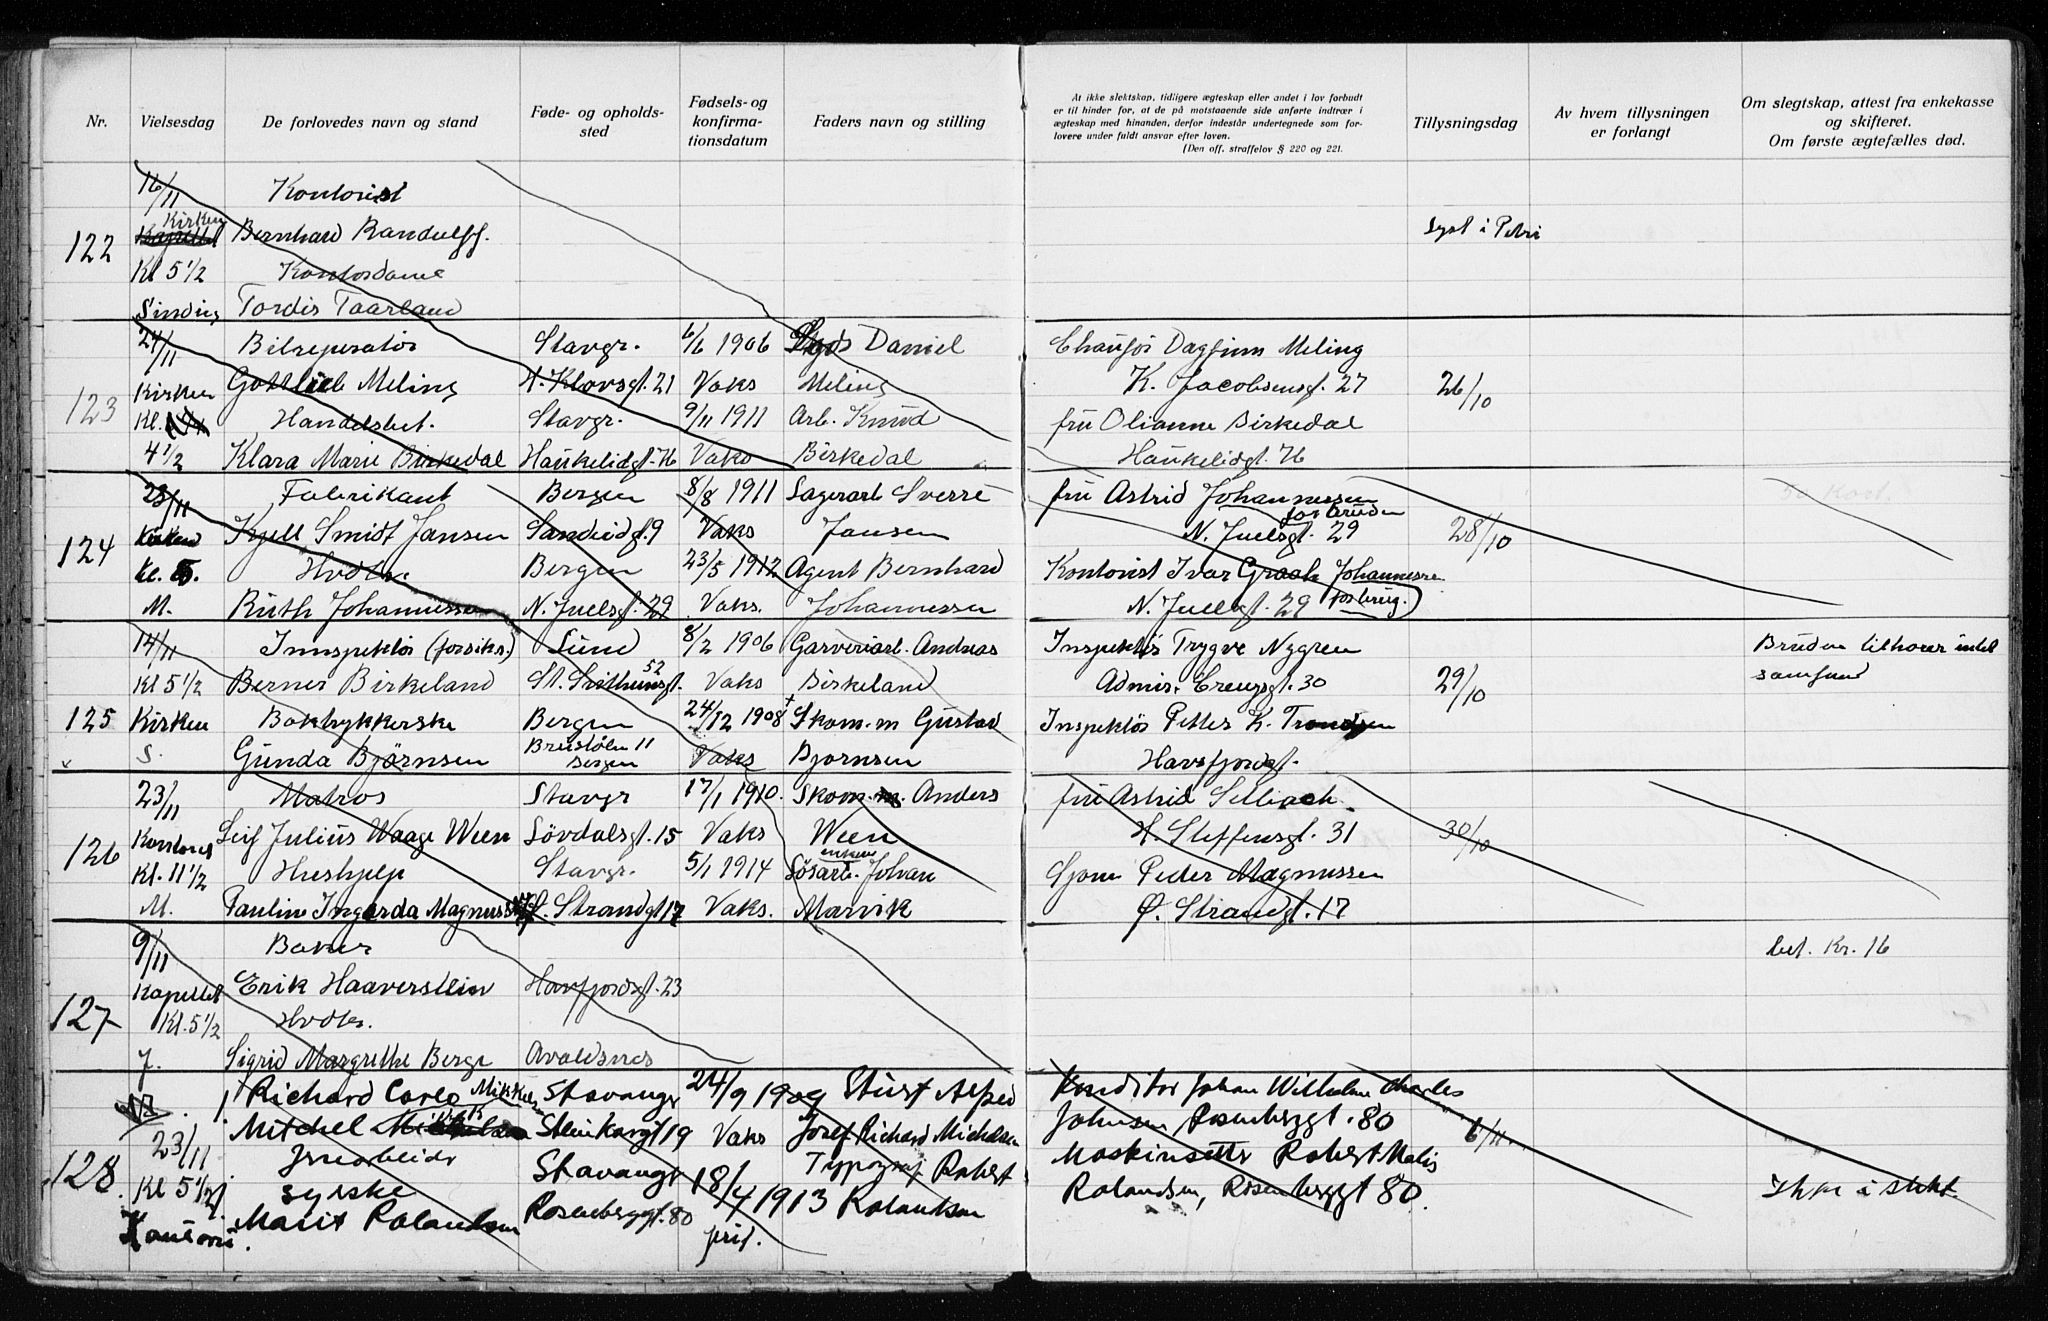 Nr.
Vielsesdag
De forlovedes navn og stand
Føde- og opholds-
sted
Fødsels- og
konfirma-
tionsdatum
Faders navn og stilling
At ikke slektskap, tidligere ægteskap eller andet i lov forbudt
er til hinder for, at de på motstaaende side anførte indtrær i
ægteskap med hinanden, derfor indestår undertegnede som for-
lovere under fuldt ansvar efter loven.
(Den off. straffelov § 220 og 221.
Tillysningsdag
Av hvem tillysningen
er forlangt
Om slegtskap, attest fra enkekasse
og skifteret.
Om første ægtefælles død.
16/11 Kontorist
Kirken
122 Kapellet Bernhard Randulff. lyst i Petri
Kl 5 1/2 Kontordame
Sinding Tordis Taarland
24/11 Bilreperatør Stavgr. 6/6 1906 Daniel Chaufør Dagfinn Meling
123 Kirken Gottlieb Meling St. Klovsgt. 21 Vaks Meling K. Jacobsensgt. 27 26/10
Kl. Handelsbet. Stavgr. 9/11 1911 Arb. Knud fru Olianne Birkedal
4 1/2 Klara Marie Birkedal Haukelidgt. 76 Vaks Birkedal Haukelidgt. 76
23/11 Fabrikant Bergen 8/8 1911 Lagerarb Sverre fru Astrid Johannessen
for bruden
124 Kirken Kjell Smidt Jansen Sandeidgt. 9 Vaks Jansen N. Juelsgt. 29 28/10
Kl. 5. Hvdtr. Bergen 23/5 1912 Agent Bernhard Kontorist Ivar Graah Johannesse
M. Ruth Johannessen N. Juelsgt. 29 Vaks. Johannessen N. Juelsgt. 29 for brug.
14/11 Innspektør (forsikr.) Sund 8/2 1906 Garveriarb. Andreas Inspektør Trygve Nygren Bruden tilhører intet
Kl 5 1/2 Berner Birkeland St. Svithunsgt. 52 Vaks Birkeland Admir. Creuzsgt. 30 29/10 samfund
125 Kirken Boktrykkerske Bergen 24/12 1908 † Skom. m Gustav Inspektør Petter K. Trondsen
S. Gunda Bjørnsen Breistølen 11 Bergen Vaks Bjørnsen Havsfjordsgt.
23/11 Matros Stavgr 17/1 1910. Skom. m. Anders fru Astrid Selbach
126 Kontoret Leif Julius Waage Ween Lövdalsgt. 15 Vaks Ween H. Steffensgt. 31 30/10
Kl. 11 1/2 Hushjelp Stavgr. 5/1 1914 Søsarb. Johan Sjøm Peder Magnussen
M. Pauline Ingerda Magnussen Ø. Strandgt 17 Vaks. Marvik Ø. Strandgt. 17
9/11 Baker bet. Kr. 16
Kapellet Erik Haaverstein Havsfjordsgt. 23
127 Kl. 5 1/2 Hvdtr.
J. Sigrid Margrethe Berge Avaldsnes
Richard Carlo Stavanger 24/9 1909 Stuert Alfred Konditor Johan Wilhelm Charles
Mitchel Steinkargt 19 Vaks Josef Richard Michelsen Johnsen Rosenberggt. 80 6/11.
23/11 Jernarbeider Stavanger 18/4 1913 Typograf Robert Maskinsetter Robert Malis
128. Kl 5 1/2 syerske Rosenberggt. 80 priv. Rolandsen Rolandsen, Rosenberggt 80. Ikke i slekt
Kontoret. Marit Rolandsen